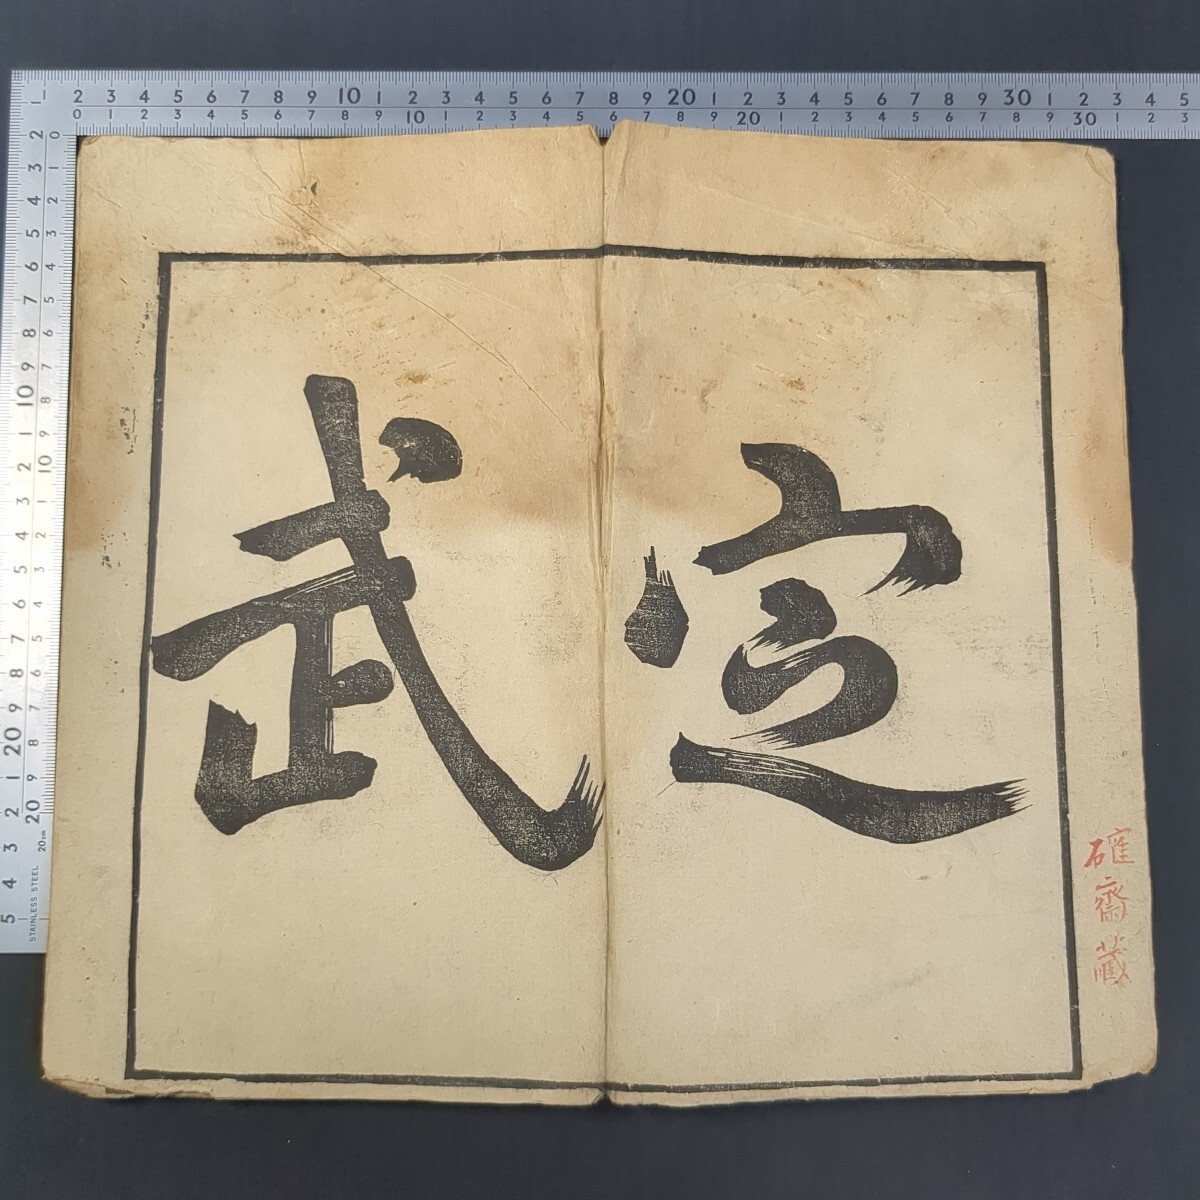 定武
確齋藏
2 3 4 5 6 7 8 9 10 1 2 3 4 5 6 7 8 9 20 1 2 3 4 5 6 7 8 9 30 1 2 3 4 5
0 1 2 3 4 5 6 7 8 9 10 1 2 3 4 5 6 7 8 9 20 1 2 3 4 5 6 7 8 9 30 1 2 3
STAINLESS STEEL 20cm